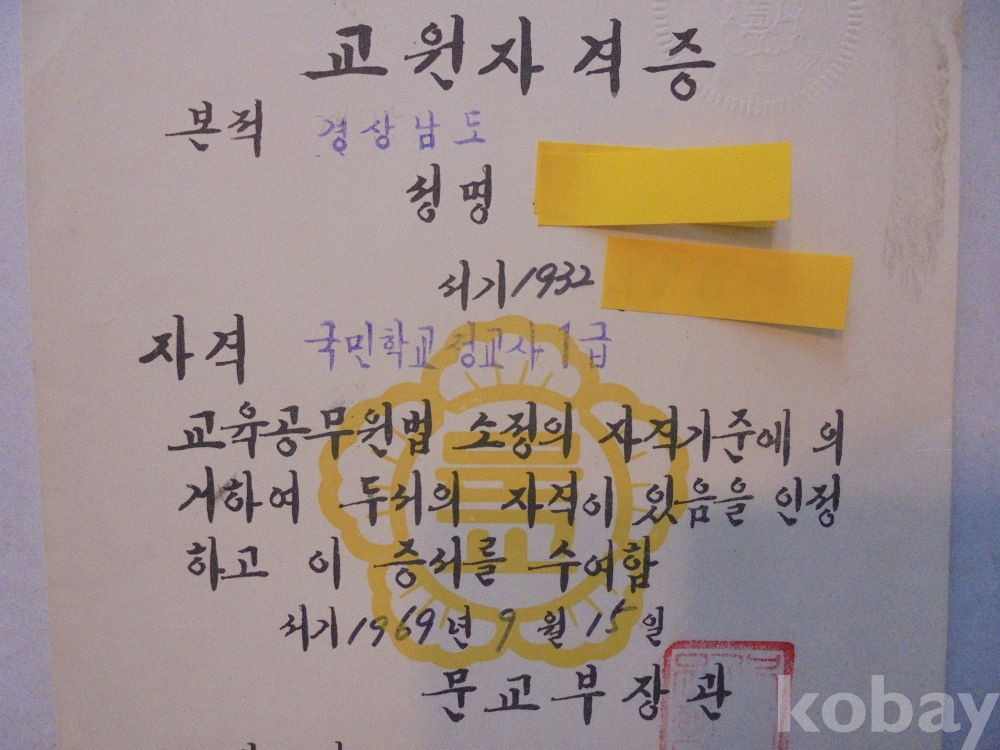 교원자격증
본적 경상남도
성명
서기 1932
자격 국민학교 정교사 1급
교육공무원법 소정의 자격기준에 의
거하여 두서의 자격이 있음을 인정
하고 이 증서를 수여함
서기 1969년 9월 15일
문교부장관
kobay